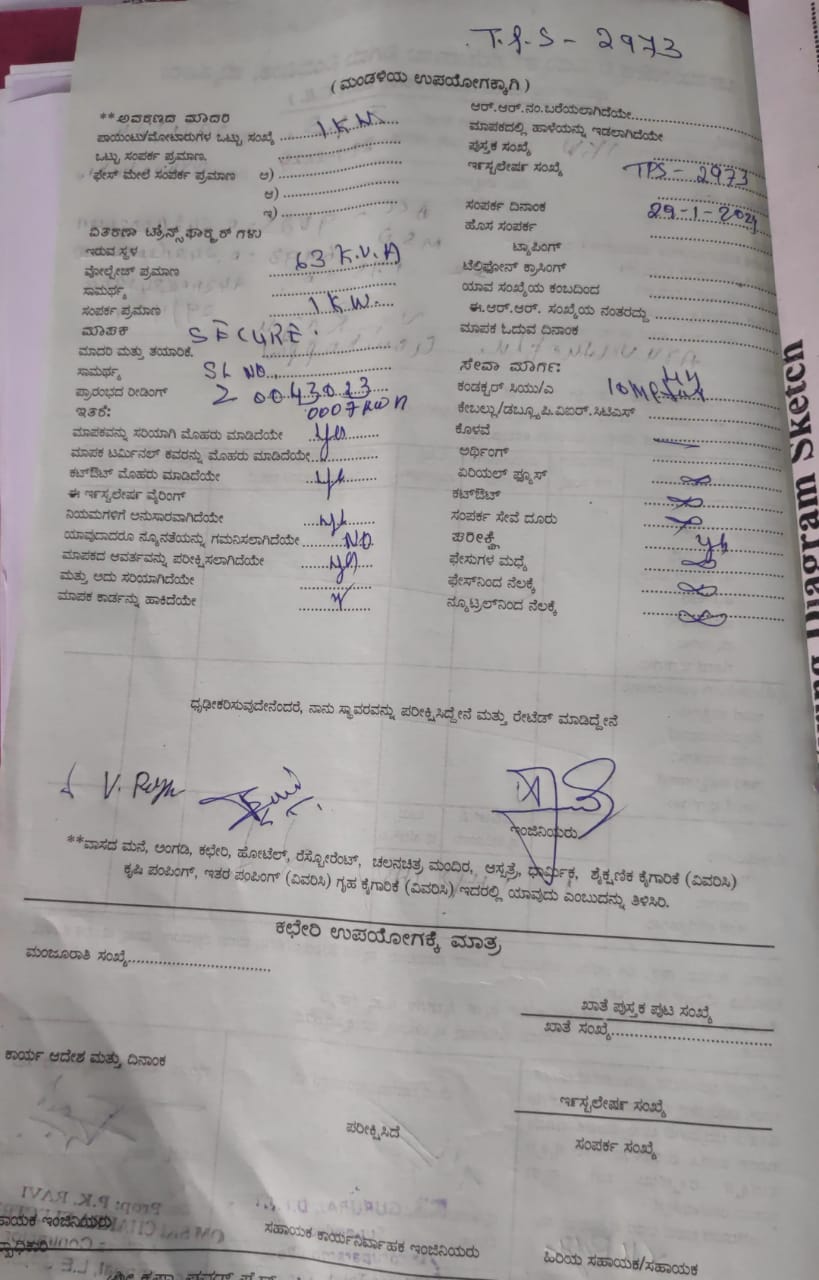 T.P.S - 2973
( ಮಂಡಳಿಯ ಉಪಯೋಗಕ್ಕಾಗಿ )
**ಆವರಣದ ಮಾದರಿ
ಪಾಯಿಂಟು/ಮೋಟಾರುಗಳ ಒಟ್ಟು ಸಂಖ್ಯೆ 1 K W.
ಒಟ್ಟು ಸಂಪರ್ಕ ಪ್ರಮಾಣ.
ಫೇಸ್ ಮೇಲೆ ಸಂಪರ್ಕ ಪ್ರಮಾಣ ಅ)
ಆ)
ಇ)
ವಿತರಣಾ ಟ್ರಾನ್ಸ್‌ಫಾರ್ಮರ್ ಗಳು
ಇರುವ ಸ್ಥಳ
ವೋಲ್ಟೇಜ್ ಪ್ರಮಾಣ 63 K.V.A
ಸಾಮರ್ಥ್ಯ
ಸಂಪರ್ಕ ಪ್ರಮಾಣ 1 K W.
ಮಾಪಕ SECURE.
ಮಾದರಿ ಮತ್ತು ತಯಾರಿಕೆ.
ಸಾಮರ್ಥ್ಯ SL NO.
ಪ್ರಾರಂಭದ ರೀಡಿಂಗ್ 20043013
ಇತರೆ:
ಮಾಪಕವನ್ನು ಸರಿಯಾಗಿ ಮೊಹರು ಮಾಡಿದೆಯೇ yes
ಮಾಪಕ ಟರ್ಮಿನಲ್ ಕವರನ್ನು ಮೊಹರು ಮಾಡಿದೆಯೇ
ಕಟ್‌ಔಟ್ ಮೊಹರು ಮಾಡಿದೆಯೇ
ಈ ಇನ್ಸ್ಟಲೇಷರ್ ವೈರಿಂಗ್
ನಿಯಮಗಳಿಗೆ ಅನುಸಾರವಾಗಿದೆಯೇ
ಯಾವುದಾದರೂ ನ್ಯೂನತೆಯನ್ನು ಗಮನಿಸಲಾಗಿದೆಯೇ NO
ಮಾಪಕದ ಆವರ್ತವನ್ನು ಪರೀಕ್ಷಿಸಲಾಗಿದೆಯೇ
ಮತ್ತು ಅದು ಸರಿಯಾಗಿದೆಯೇ
ಮಾಪಕ ಕಾರ್ಡನ್ನು ಹಾಕಿದೆಯೇ
ಆರ್.ಆರ್.ನಂ.ಬರೆಯಲಾಗಿದೆಯೇ
ಮಾಪಕದಲ್ಲಿ ಹಾಳೆಯನ್ನು ಇಡಲಾಗಿದೆಯೇ
ಪುಸ್ತಕ ಸಂಖ್ಯೆ
ಇನ್ಸ್ಟಲೇಷರ್ ಸಂಖ್ಯೆ TPS - 2973
ಸಂಪರ್ಕ ದಿನಾಂಕ 29-1-2021
ಹೊಸ ಸಂಪರ್ಕ
ಟ್ಯಾಪಿಂಗ್
ಟೆಲಿಫೋನ್ ಕ್ರಾಸಿಂಗ್
ಯಾವ ಸಂಖ್ಯೆಯ ಕಂಬದಿಂದ
ಈ.ಆರ್.ಆರ್. ಸಂಖ್ಯೆಯ ನಂತರದ್ದು
ಮಾಪಕ ಓದುವ ದಿನಾಂಕ
ಸೇವಾ ಮಾರ್ಗ:
ಕಂಡಕ್ಟರ್ ಸಿಯು/ಎ
ಕೇಬಲ್ಲು/ಡಬ್ಲ್ಯೂ.ಪಿ.ವಿಐಆರ್.ಸಿಟಿಎಸ್
ಕೊಳವೆ
ಅರ್ಥಿಂಗ್
ಏರಿಯಲ್ ಫ್ಯೂಸ್
ಕಟ್‌ಔಟ್
ಸಂಪರ್ಕ ಸೇವೆ ದೂರು
ಪರೀಕ್ಷೆ
ಫೇಸುಗಳ ಮಧ್ಯೆ
ಫೇಸ್‌ನಿಂದ ನೆಲಕ್ಕೆ
ನ್ಯೂಟ್ರಲ್‌ನಿಂದ ನೆಲಕ್ಕೆ
ಧೃಢೀಕರಿಸುವುದೇನೆಂದರೆ, ನಾನು ಸ್ಥಾವರವನ್ನು ಪರೀಕ್ಷಿಸಿದ್ದೇನೆ ಮತ್ತು ರೇಟೆಡ್ ಮಾಡಿದ್ದೇನೆ
ಇಂಜಿನಿಯರು
**ವಾಸದ ಮನೆ, ಅಂಗಡಿ, ಕಛೇರಿ, ಹೋಟೆಲ್, ರೆಸ್ಟೋರೆಂಟ್, ಚಲನಚಿತ್ರ ಮಂದಿರ, ಆಸ್ಪತ್ರೆ, ಧಾರ್ಮಿಕ, ಶೈಕ್ಷಣಿಕ ಕೈಗಾರಿಕೆ (ವಿವರಿಸಿ)
ಕೃಷಿ ಪಂಪಿಂಗ್, ಇತರ ಪಂಪಿಂಗ್ (ವಿವರಿಸಿ) ಗೃಹ ಕೈಗಾರಿಕೆ (ವಿವರಿಸಿ) ಇದರಲ್ಲಿ ಯಾವುದು ಎಂಬುದನ್ನು ತಿಳಿಸಿರಿ.
ಕಛೇರಿ ಉಪಯೋಗಕ್ಕೆ ಮಾತ್ರ
ಮಂಜೂರಾತಿ ಸಂಖ್ಯೆ
ಖಾತೆ ಪುಸ್ತಕ ಪುಟ ಸಂಖ್ಯೆ
ಖಾತೆ ಸಂಖ್ಯೆ
ಕಾರ್ಯ ಆದೇಶ ಮತ್ತು ದಿನಾಂಕ
ಇನ್ಸ್ಟಲೇಷರ್ ಸಂಖ್ಯೆ
ಪರೀಕ್ಷಿಸಿದೆ
ಸಂಪರ್ಕ ಸಂಖ್ಯೆ
ಇಂಜಿನಿಯರು
ಸಹಾಯಕ ಕಾರ್ಯನಿರ್ವಾಹಕ ಇಂಜಿನಿಯರು
ಹಿರಿಯ ಸಹಾಯಕ/ಸಹಾಯಕ
Diagram Sketch